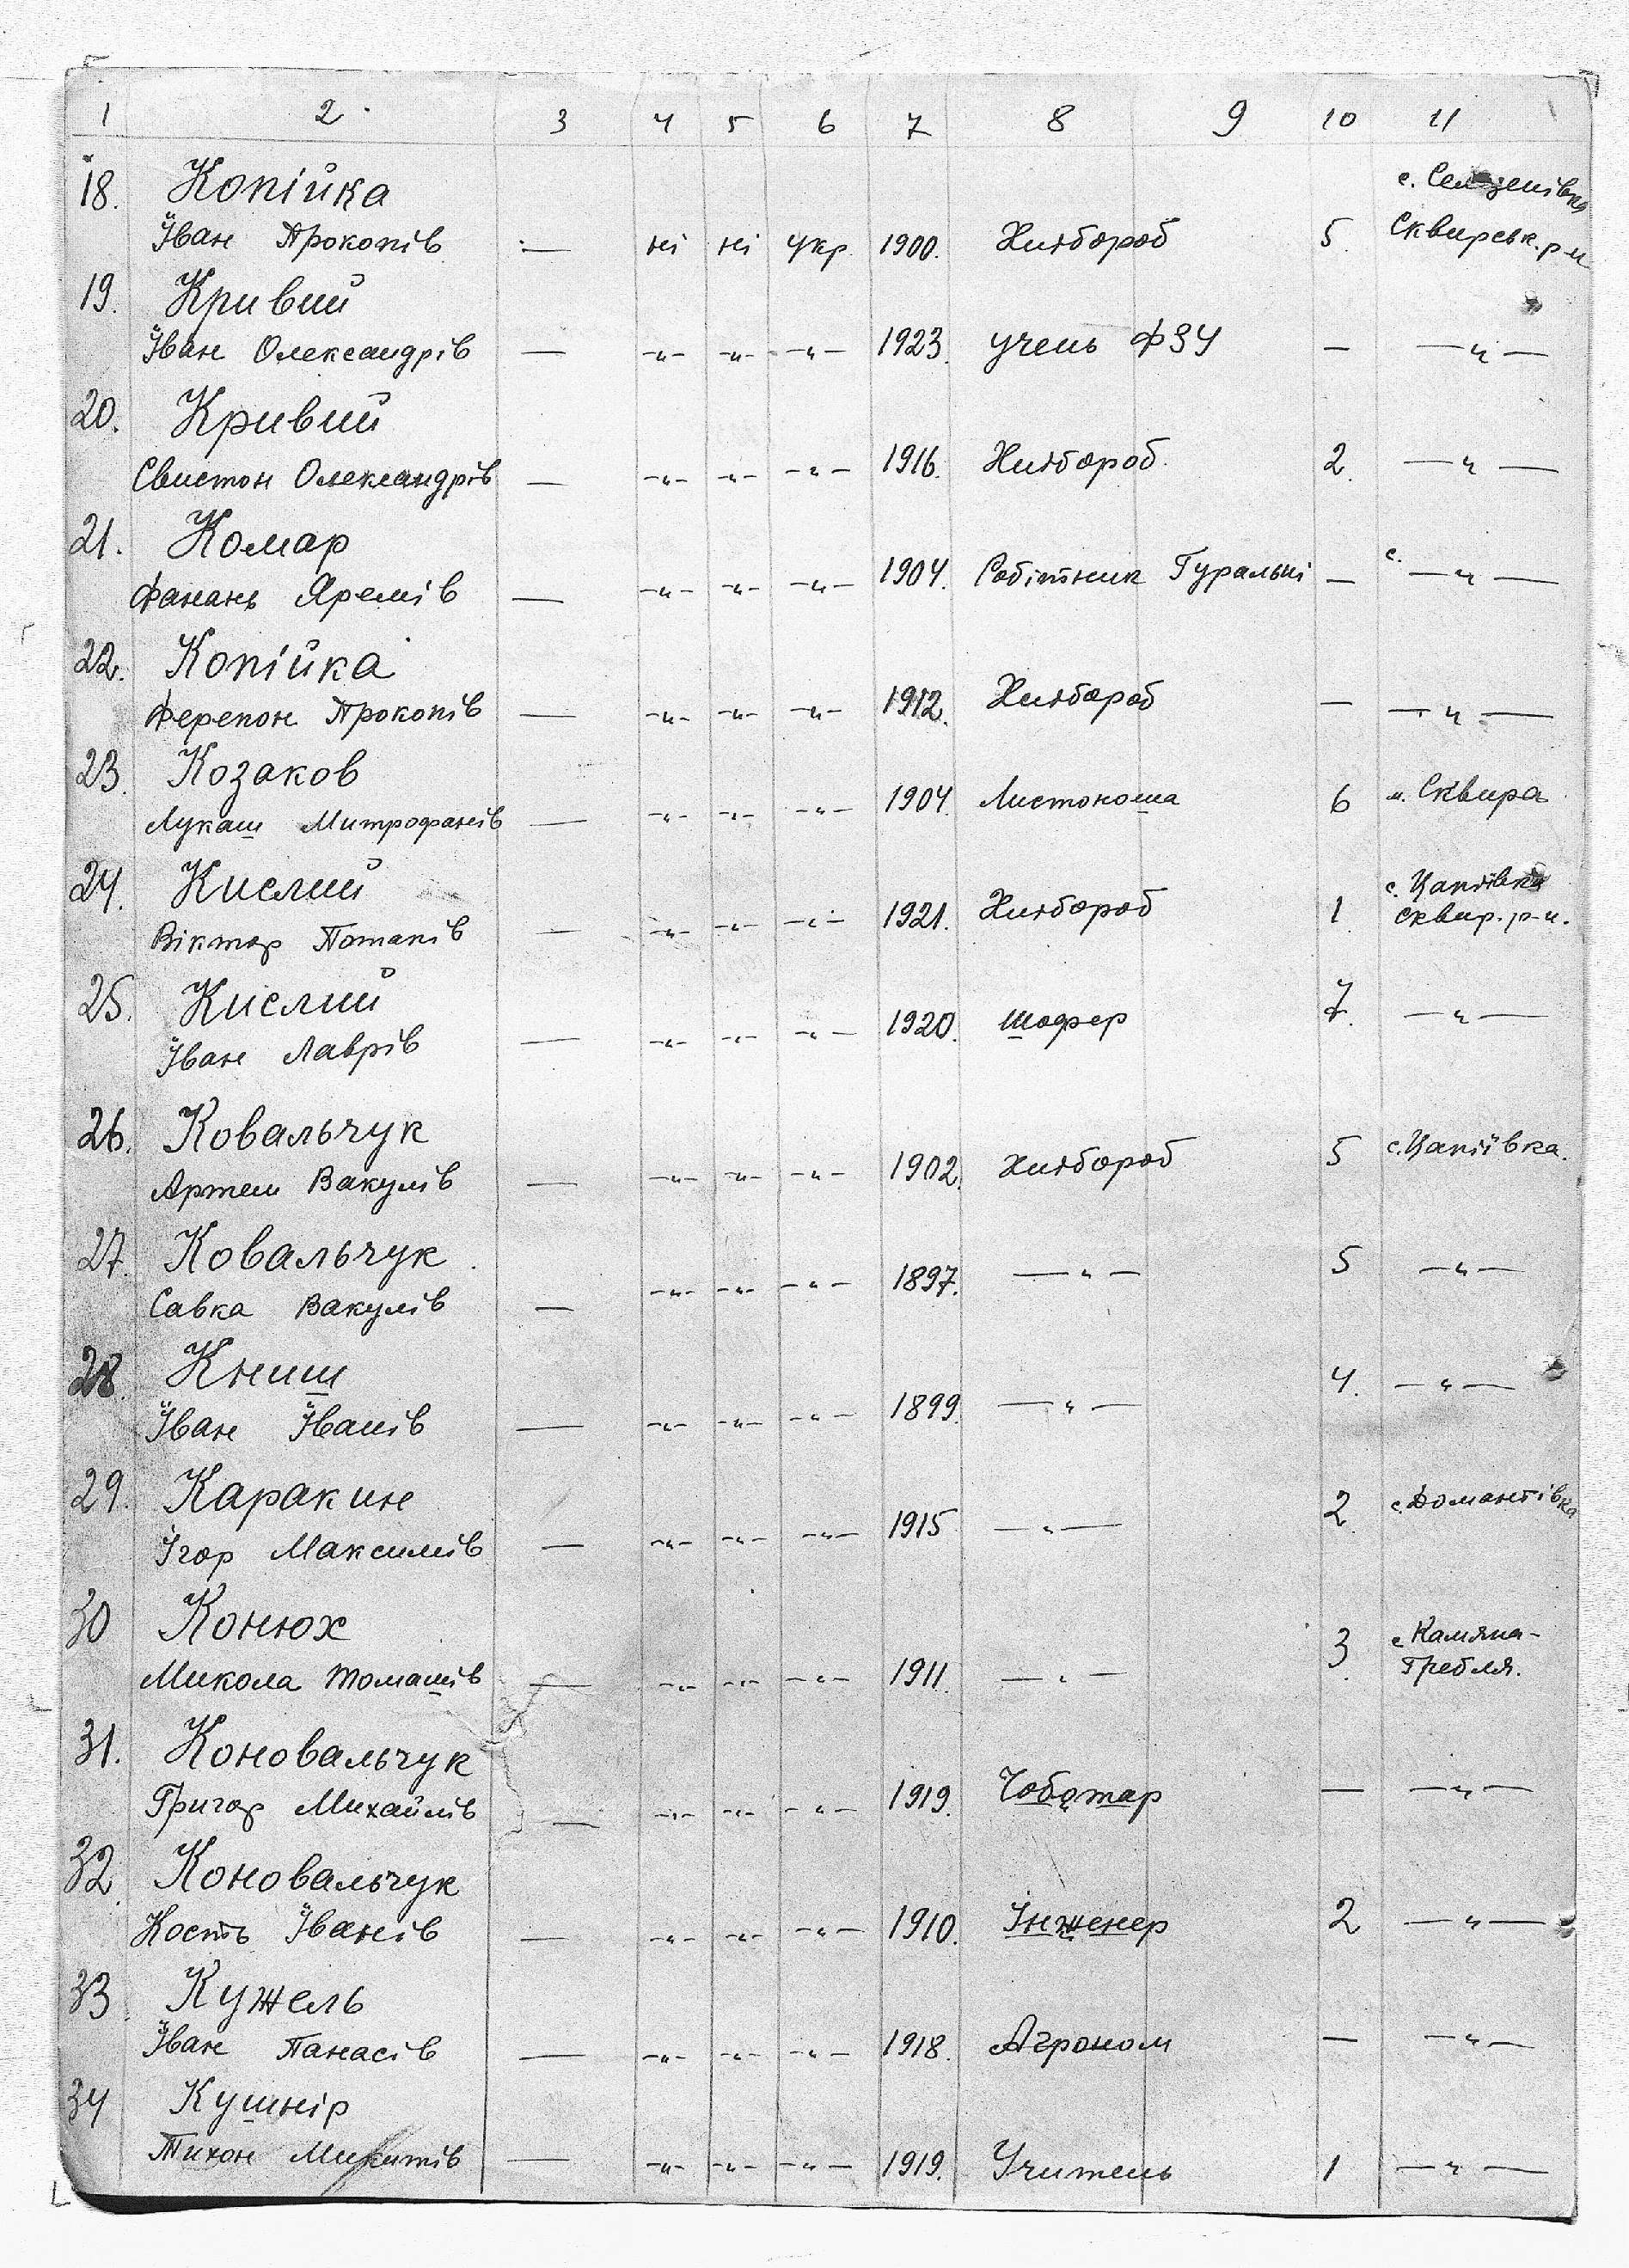 1 2 3 4 5 6 7 8 9 10 11
18. Копійка с. Селезенівка
Їван Прокопів — ні ні укр. 1900. Хлібороб 5. Сквирськ. р-н
19. Кривий
Їван Олександрів — -„- -„- -„- 1923. учень ФЗУ — —„—
20. Кривий
Свистон Олександрів — -„- -„- -„- 1916. Хлібороб. 2. —„—
21. Комар с.
Фанань Яремів — -„- -„- -„- 1904. Робітник Гуральні — —„—
22. Копійка
Ферепон Прокопів — -„- -„- -„- 1912. Хлібороб — —„—
23. Козаков
Лукаш Митрофанів — -„- -„- -„- 1904. Листоноша 6 м. Сквира
24. Кислий с. Цапіївка
Віктор Потапів — -„- -„- -„- 1921. Хлібороб 1. Сквир. р-н.
25. Кислий
Їван Лаврів — -„- -„- -„- 1920. шофер 7. —„—
26. Ковальчук
Артем Вакулів — -„- -„- -„- 1902. хлібороб 5 с. Цапіївка.
27. Ковальчук
Савка Вакулів — -„- -„- -„- 1897. —„— 5 —„—
28. Книш
Їван Їванів — -„- -„- -„- 1899. —„— 4. —„—
29. Каракин
Ігор Максимів — -„- -„- -„- 1915 —„— 2. с. Домантівка
30 Конюх с Камяна-
Микола Томашів — -„- -„- -„- 1911. —„— 3. Гребля.
31. Коновальчук
Григор Михайлів — -„- -„- -„- 1919. Чоботар — —„—
32. Коновальчук
Кость Їванів — -„- -„- -„- 1910. Інженер 2 —„—
33. Кужель
Їван Панасів — -„- -„- -„- 1918. Агроном — —„—
34 Кушнір
Тихон Микитів — -„- -„- -„- 1919. Учитель 1 —„—